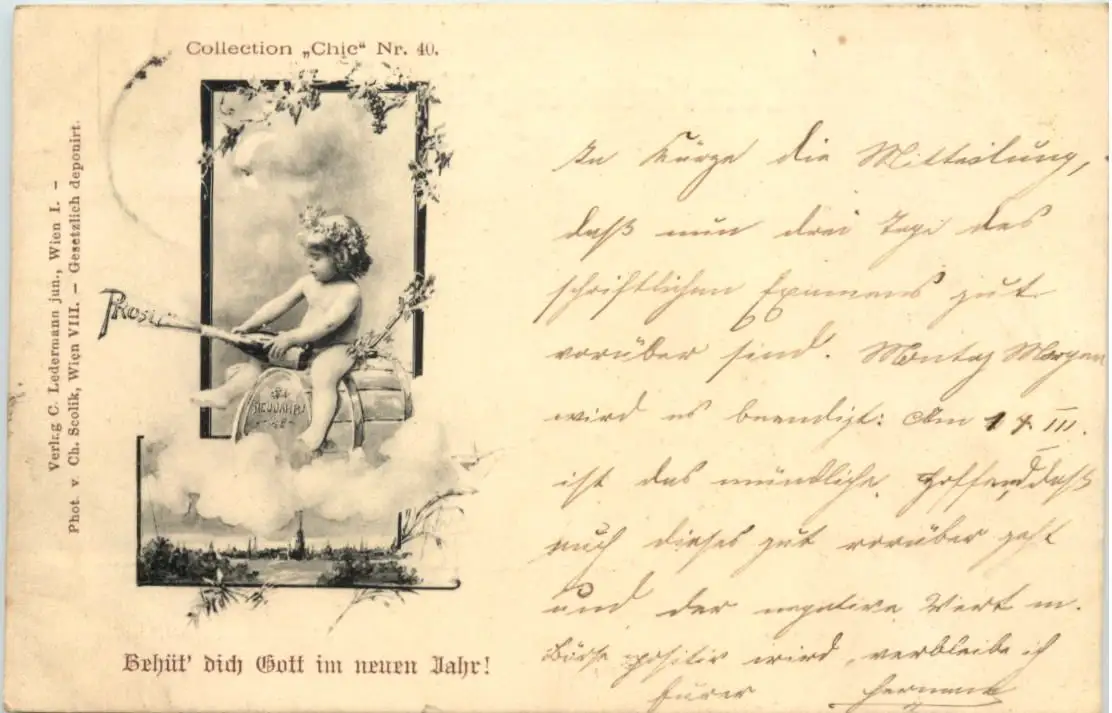 Collection „Chic“ Nr. 40.
Verlag C. Ledermann jun., Wien I. –
Phot. v. Ch. Scolik, Wien VIII. – Gesetzlich deponirt.
PROSIT
NEUJAHR!
Behüt' dich Gott im neuen Jahr!
In Kürze die Mitteilung,
daß nun drei Tage des
schriftlichen Examens gut
vorüber sind. Montag Morgen
wird es beendigt: Am 14. III.
ist das mündliche. Hoffend, daß
auch dieses gut vorüber geht
und der negative Wert m.
Börse positiv wird, verbleibe ich
Eurer Hermann